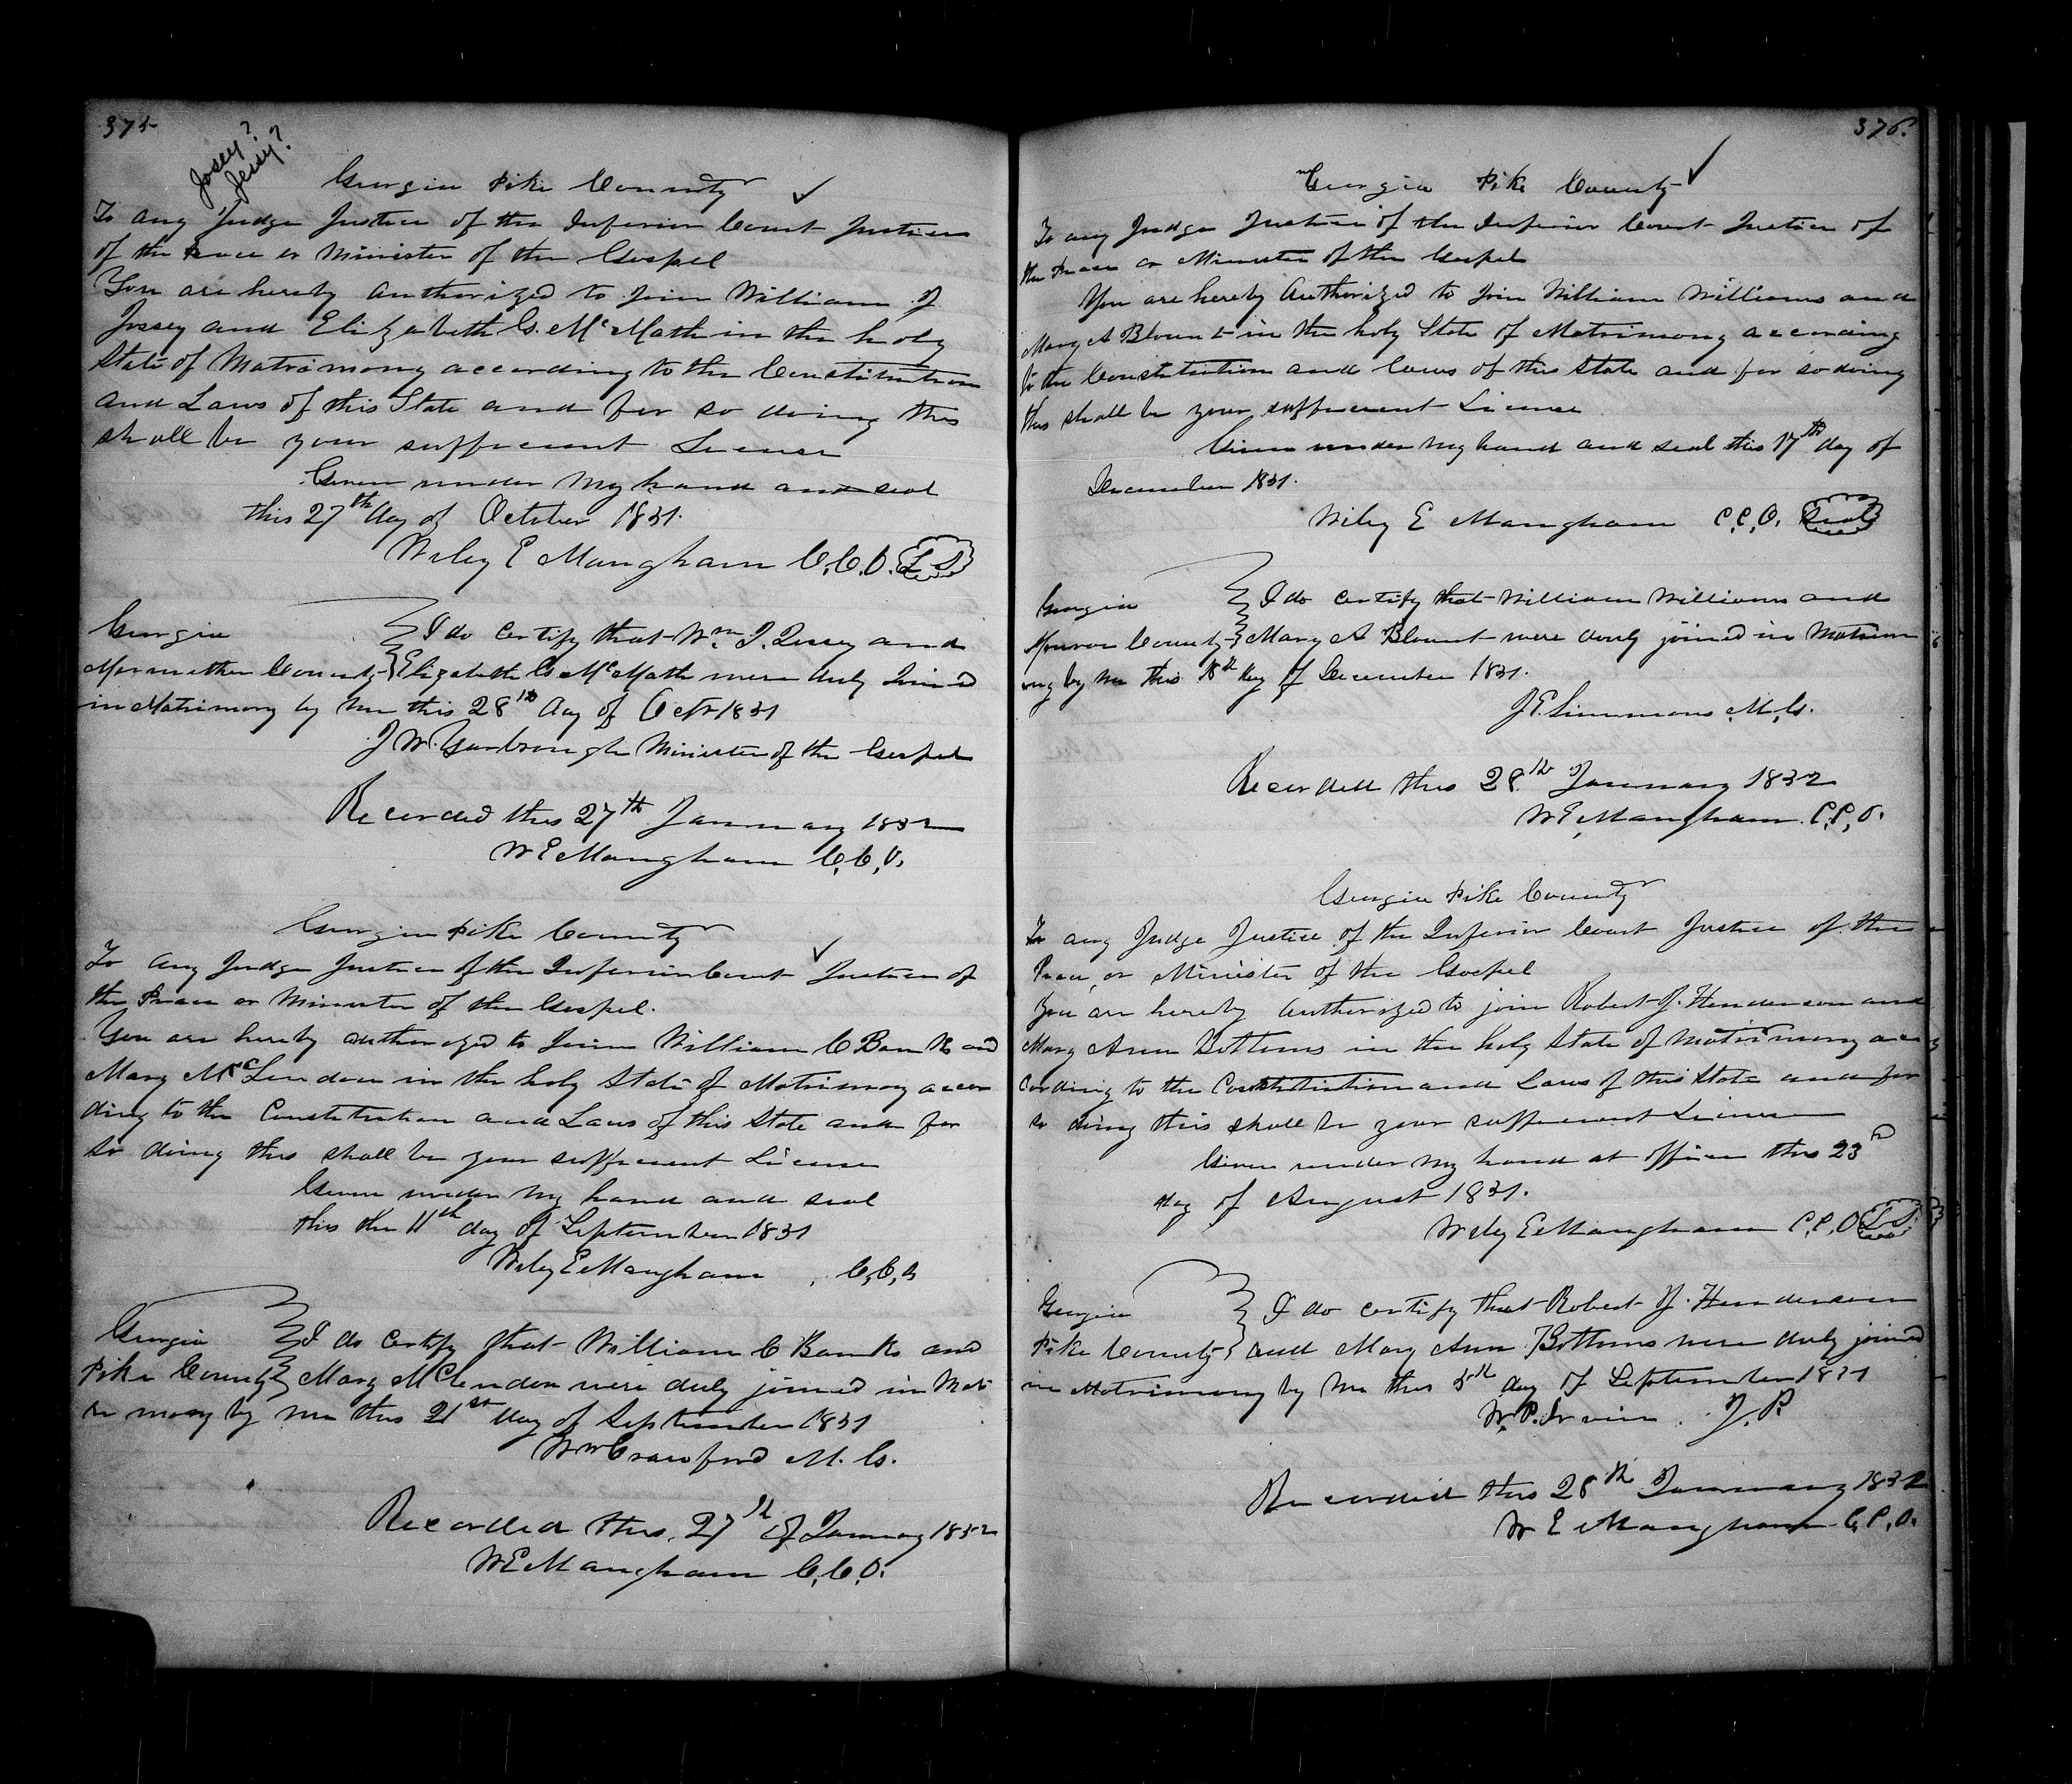 375
Josey?
Jessy?
Georgia Pike County
To any Judge Justice of the Inferior Court Justice
of the Peace or Minister of the Gospel
You are hereby authorized to Join William J
Jossey and Elizabeth G. McMath in the holy
State of Matrimony according to the Constitution
and Laws of this State and for so doing this
shall be your sufficient License
Given under my hand and seal
this 27th day of October 1831.
Wiley E Mangham C.C.O. L S
Georgia
Merriwether County
I do Certify that Wm J. Jossey and
Elizabeth G McMath were duly Joined
in Matrimony by me this 28th day of Octr 1831
J W. Yarbrough Minister of the Gospel
Recorded this 27th January 1832
W E Mangham C.C.O.
Georgia Pike County
To any Judge Justice of the Inferior Court Justice of
the Peace or Minister of the Gospel.
You are hereby authorized to Join William C Banks and
Mary McLendon in the holy State of Matrimony accor
ding to the Constitution and Laws of this State and for
so doing this shall be your sufficient License
Given under my hand and seal
this the 11th day of September 1831
Wiley E Mangham C.C.O
Georgia
Pike County
I do Certify that William C Banks and
Mary McClendon were duly joined in Mat
ri mony by me this 21st day of September 1831
Wm Crawford M. G.
Recorded this 27th of January 1832
W E Mangham C.C.O.
376.
Georgia Pike County
To any Judge Justice of the Inferior Court Justice of
the Peace or Minister of the Gospel
You are hereby Authorized to Join William Williams and
Mary A Blount in the holy State of Matrimony according
to the Constitution and laws of this State and for so doing
this shall be your sufficient License
Given under my hand and seal this 17th day of
December 1831.
Wiley E Mangham C.C.O. Seal
Georgia
Monroe County
I do certify that William Williams and
Mary A Blount were duly joined in Matrim
ony by me this 18th day of December 1831.
J E. Simmons M.G.
Recorded this 28th January 1832
W E Mangham C.C.O.
Georgia Pike County
To any Judge Justice of the Inferior Court Justice of the
Peace, or Minister of the Gospel
You are hereby authorized to join Robert J. Henderson and
Mary Ann Bottoms in the holy State of Matrimony ac
cording to the Constitution and Laws of this State and for
so doing this shall be your sufficient License
Given under my hand at office this 23d
day of August 1831.
Wiley E Mangham C.C.O L S
Georgia
Pike County
I do certify that Robert J. Henderson
and Mary Ann Bottoms were duly joined
in Matrimony by me this 5th day of September 1831
W. P. Irvin J. P.
Recorded this 28th January 1832
W E Mangham C.C.O.